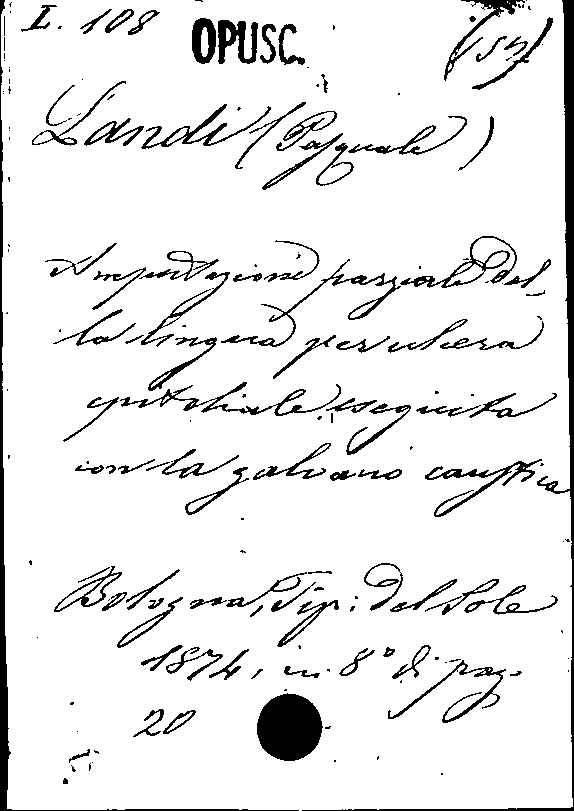 L. 108 OPUSC. (157)
Landi (Pasquale)
Amputazione parziale del-
la lingua per ulcera
epiteliale eseguita
con la galvano caustica
Bologna, Tip: del Sole
1874, in 8° di pag.
20